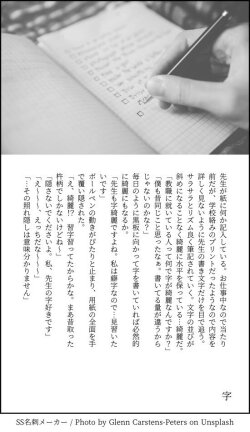 字
先生が紙に何か記入している。お仕事中なので当たり
前だが、学校絡みのプリントだったようなので内容を
詳しく見ないように先生の書き文字だけを目で追う。
サラサラとリズム良く筆記されていく。文字の並びが
斜めになることなく綺麗に水平を保っている…綺麗だ。
「教職に就いている人って何で字が綺麗なんですか？」
「僕も昔同じこと思ったなぁ。書いてる量が違うから
じゃないのかな？」
毎日のように黒板に向かって字を書いていれば必然的
に綺麗にもなるか。
「先生も字綺麗ですよね。私は癖字なので…見習いた
いです」
ボールペンの動きがぴたりと止まり、用紙の全面を手
で覆い隠された。
「え、綺麗!?　習字習ってたからかな。まあ昔取った
杵柄でしかないけどね〜」
「隠さないでくださいよ。私、先生の字好きです」
「え〜〜〜、えっちだな〜〜〜」
「…その照れ隠しは意味分かりません」
SS名刺メーカー / Photo by Glenn Carstens-Peters on Unsplash